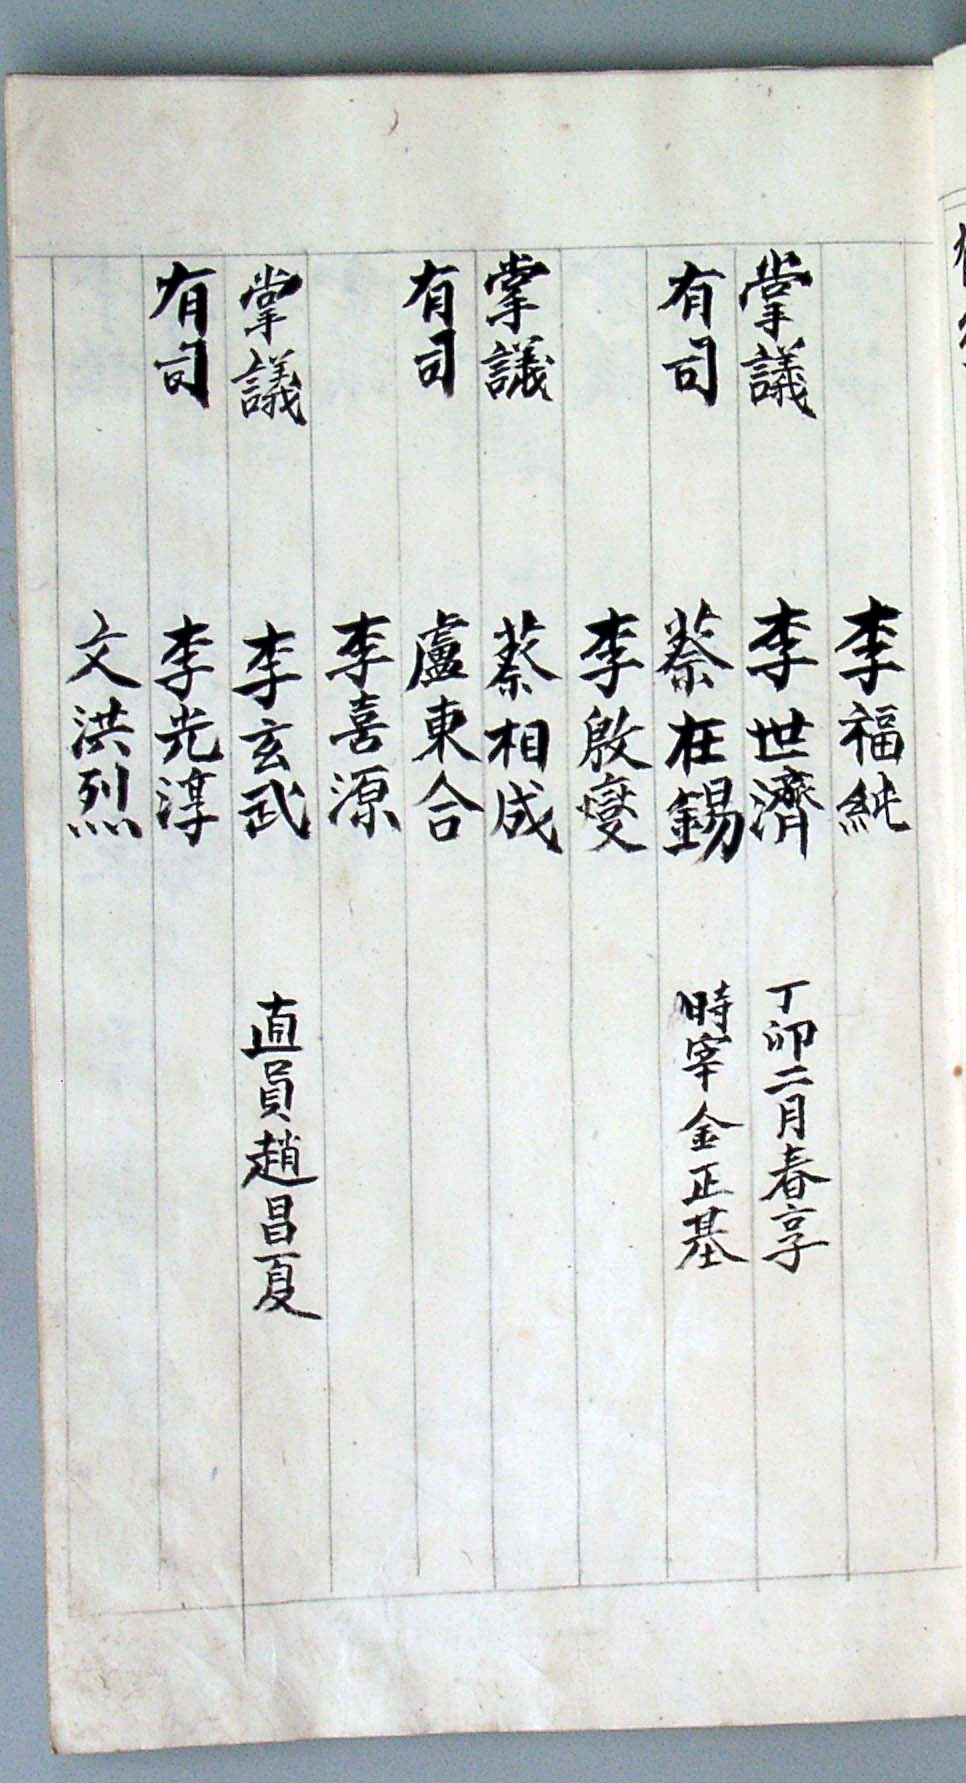 李福純
掌議 李世濟 丁卯二月春享
有司 蔡在錫 時宰金正基
李殷燮
掌議 蔡相成
有司 盧東合
李喜源
掌議 李玄武 直員趙昌夏
有司 李光淳
文洪烈